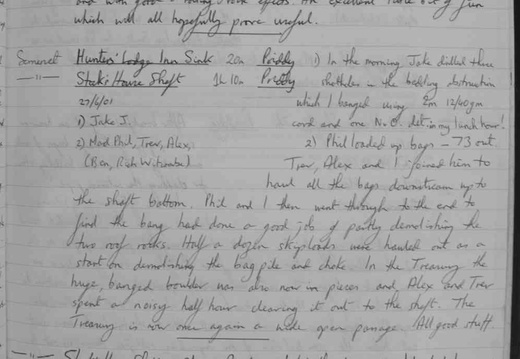 which will all hopefully prove useful.
Somerset Hunters' Lodge Inn Sink 20m Priddy 1) In the morning Jake drilled three
—"— Stock's House Shaft 1h 10m Priddy shotholes in the bedding obstruction
27/6/01 which I banged using 2m 12/40gm
1) Jake J. cord and one N.E. det. in my lunch hour!
2) Mad Phil, Trev, Alex, 2) Phil loaded up bags - 73 out.
(Ben, Rich Witcombe) Trev, Alex and I joined him to
haul all the bags downstream up to
the shaft bottom. Phil and I then went through to the end to
find the bang had done a good job of partly demolishing the
two roof rocks. Half a dozen skiploads were hauled out as a
start on demolishing the bag pile and choke. In the Treasury the
huge, banged boulder was also now in pieces and Alex and Trev
spent a noisy half hour clearing it out to the shaft. The
Treasury is now once again a wide open passage. All good stuff.